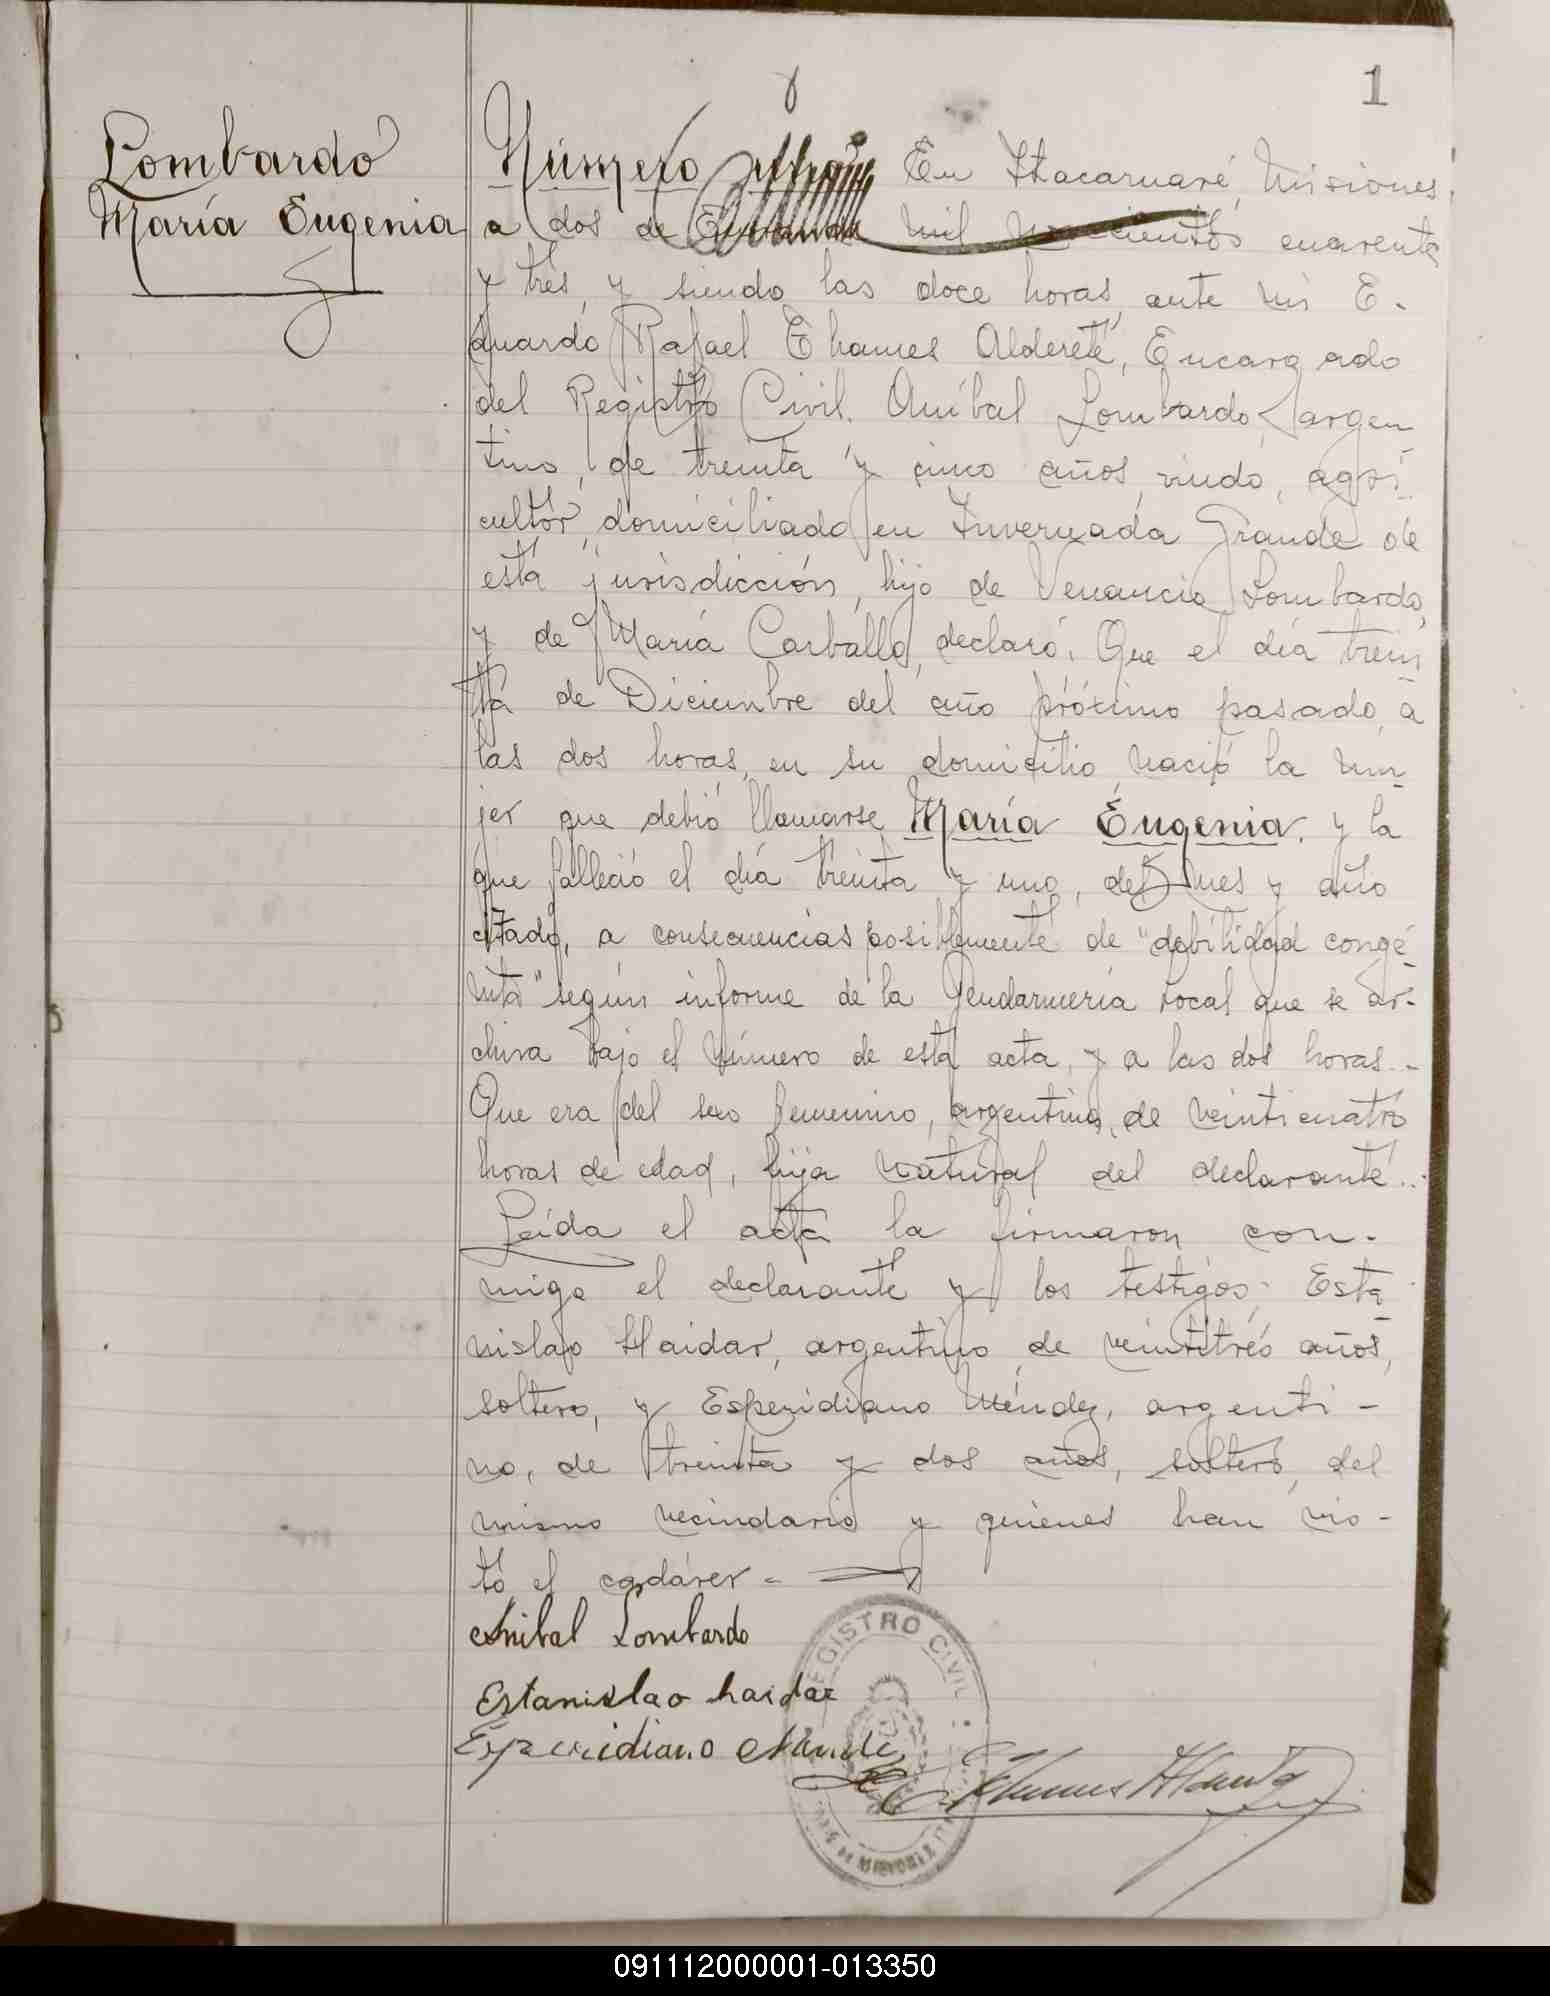 1
Lombardo
María Eugenia
Número En Itacaruaré, Misiones,
a dos de Enero de mil novecientos cuarenta
y trés, y siendo las doce horas, ante mi E-
duardo Rafael Thames Alderete, Encargado
del Registro Civil. Aníbal Lombardo, argen
tino, de treinta y cinco años, viudo, agri
cultor, domiciliado en Invernada Grande de
esta jurisdicción, hijo de Venancio Lombardo,
y de María Carballo, declaró: Que el día trein
ta de Diciembre del año próximo pasado, a
las dos horas, en su domicilio, nació la mu
jer que debió llamarse María Eugenia, y la
que falleció el día treinta y uno, del mes y año
citado, a consecuencias posiblemente de "debilidad congé
nita" según informe de la Gendarmería local que se ar-
chiva bajo el número de esta acta, y a las dos horas.-
Que era del sexo femenino, argentina, de veinticuatro
horas de edad, hija natural del declarante..-
Leída el acta la firmaron con-
migo el declarante y los testigos: Esta
nislao Haidar, argentino, de veintitrés años,
soltero, y Esperidiano Méndez, argenti-
no, de treinta y dos años, soltero, del
mismo vecindario y quienes han vis-
to el cadáver.-
Anibal Lombardo
Estanislao haidar
Esperidiano Mende
REGISTRO CIVIL
091112000001-013350